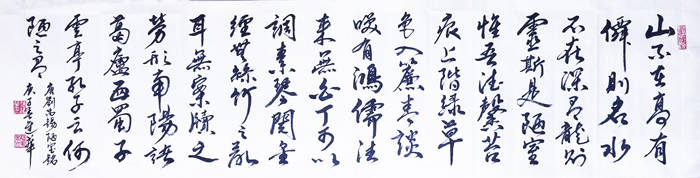 山不在高有
僊則名水
不在深有龍則
靈斯是陋室
惟吾德馨苔
痕上階綠草
色入簾青談
咲有鴻儒往
來無白丁可以
調素琴閱金
經無絲竹之亂
耳無案牘之
勞形南陽諸
葛廬西蜀子
雲亭孔子云何
陋之有
唐劉禹錫陋室銘
庚子